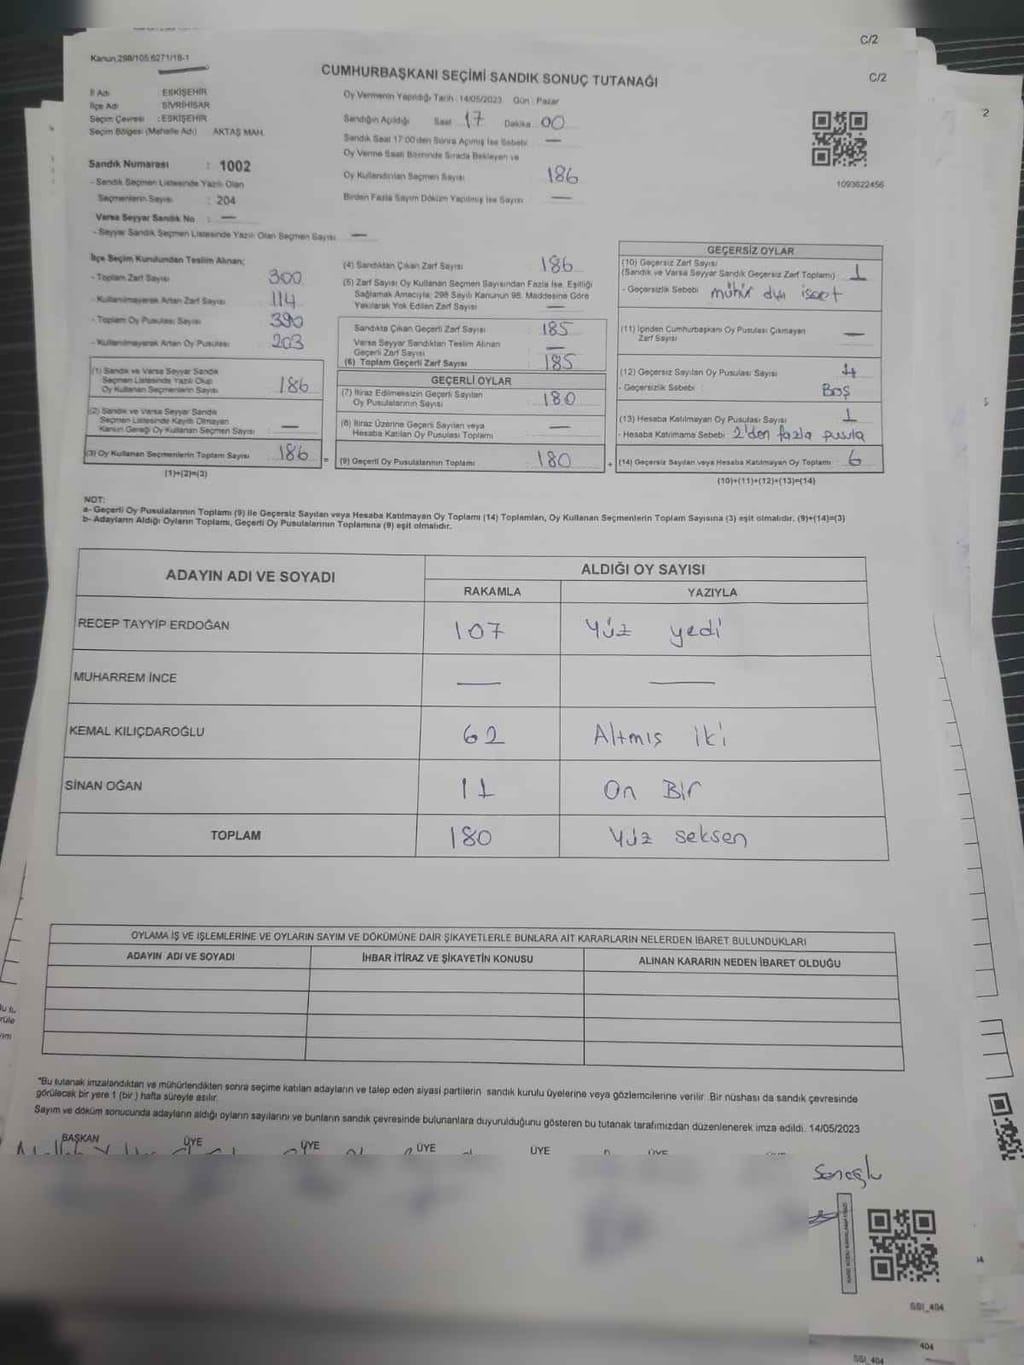 C/2
Kanun:298/105:6271/18-1
C/2
CUMHURBAŞKANI SEÇİMİ SANDIK SONUÇ TUTANAĞI
İl Adı : ESKİŞEHİR
İlçe Adı : SİVRİHİSAR
Seçim Çevresi : ESKİŞEHİR
Seçim Bölgesi (Mahalle Adı) AKTAŞ MAH.
Oy Vermenin Yapıldığı Tarih : 14/05/2023 Gün : Pazar
Sandığın Açıldığı Saat 17 Dakika 00
Sandık Saat 17:00'den Sonra Açılmış İse Sebebi —
Oy Verme Saati Bitiminde Sırada Bekleyen ve
Oy Kullandırılan Seçmen Sayısı 186
Birden Fazla Sayım Döküm Yapılmış İse Sayısı —
1093622456
2
Sandık Numarası : 1002
- Sandık Seçmen Listesinde Yazılı Olan
Seçmenlerin Sayısı : 204
Varsa Seyyar Sandık No : —
- Seyyar Sandık Seçmen Listesinde Yazılı Olan Seçmen Sayısı —
İlçe Seçim Kurulundan Teslim Alınan;
- Toplam Zarf Sayısı 300
- Kullanılmayarak Artan Zarf Sayısı 114
- Toplam Oy Pusulası Sayısı 390
- Kullanılmayarak Artan Oy Pusulası 203
(1) Sandık ve Varsa Seyyar Sandık
Seçmen Listesinde Yazılı Olup
Oy Kullanan Seçmenlerin Sayısı 186
(2) Sandık ve Varsa Seyyar Sandık
Seçmen Listesinde Kayıtlı Olmayan
Kanun Gereği Oy Kullanan Seçmen Sayısı —
(3) Oy Kullanan Seçmenlerin Toplam Sayısı 186 =
(1)+(2)=(3)
(4) Sandıktan Çıkan Zarf Sayısı 186
(5) Zarf Sayısı Oy Kullanan Seçmen Sayısından Fazla İse, Eşitliği
Sağlamak Amacıyla; 298 Sayılı Kanunun 98. Maddesine Göre
Yakılarak Yok Edilen Zarf Sayısı —
Sandıkta Çıkan Geçerli Zarf Sayısı 185
Varsa Seyyar Sandıktan Teslim Alınan
Geçerli Zarf Sayısı —
(6) Toplam Geçerli Zarf Sayısı 185
GEÇERLİ OYLAR
(7) İtiraz Edilmeksizin Geçerli Sayılan
Oy Pusulalarının Sayısı 180
(8) İtiraz Üzerine Geçerli Sayılan veya
Hesaba Katılan Oy Pusulası Toplamı —
(9) Geçerli Oy Pusulalarının Toplamı 180 +
GEÇERSİZ OYLAR
(10) Geçersiz Zarf Sayısı
(Sandık ve Varsa Seyyar Sandık Geçersiz Zarf Toplamı) 1
- Geçersizlik Sebebi mühür dışı işaret
(11) İçinden Cumhurbaşkanı Oy Pusulası Çıkmayan
Zarf Sayısı —
(12) Geçersiz Sayılan Oy Pusulası Sayısı 4
- Geçersizlik Sebebi : Boş
(13) Hesaba Katılmayan Oy Pusulası Sayısı 1
- Hesaba Katılmama Sebebi 2'den fazla pusula
(14) Geçersiz Sayılan veya Hesaba Katılmayan Oy Toplamı 6
(10)+(11)+(12)+(13)=(14)
NOT:
a- Geçerli Oy Pusulalarının Toplamı (9) ile Geçersiz Sayılan veya Hesaba Katılmayan Oy Toplamı (14) Toplamları, Oy Kullanan Seçmenlerin Toplam Sayısına (3) eşit olmalıdır. (9)+(14)=(3)
b- Adayların Aldığı Oyların Toplamı, Geçerli Oy Pusulalarının Toplamına (9) eşit olmalıdır.
ADAYIN ADI VE SOYADI
ALDIĞI OY SAYISI
RAKAMLA YAZIYLA
RECEP TAYYİP ERDOĞAN 107 Yüz yedi
MUHARREM İNCE — —
KEMAL KILIÇDAROĞLU 62 Altmış iki
SİNAN OĞAN 11 On Bir
TOPLAM 180 Yüz seksen
OYLAMA İŞ VE İŞLEMLERİNE VE OYLARIN SAYIM VE DÖKÜMÜNE DAİR ŞİKAYETLERLE BUNLARA AİT KARARLARIN NELERDEN İBARET BULUNDUKLARI
ADAYIN ADI VE SOYADI İHBAR İTİRAZ VE ŞİKAYETİN KONUSU ALINAN KARARIN NEDEN İBARET OLDUĞU
"Bu tutanak imzalandıktan ve mühürlendikten sonra seçime katılan adayların ve talep eden siyasi partilerin sandık kurulu üyelerine veya gözlemcilerine verilir. Bir nüshası da sandık çevresinde
görülecek bir yere 1 (bir ) hafta süreyle asılır.
Sayım ve döküm sonucunda adayların aldığı oyların sayılarını ve bunların sandık çevresinde bulunanlara duyurulduğunu gösteren bu tutanak tarafımızdan düzenlenerek imza edildi. 14/05/2023
BAŞKAN ÜYE ÜYE ÜYE ÜYE ÜYE
SSI_404
404
SSI_404